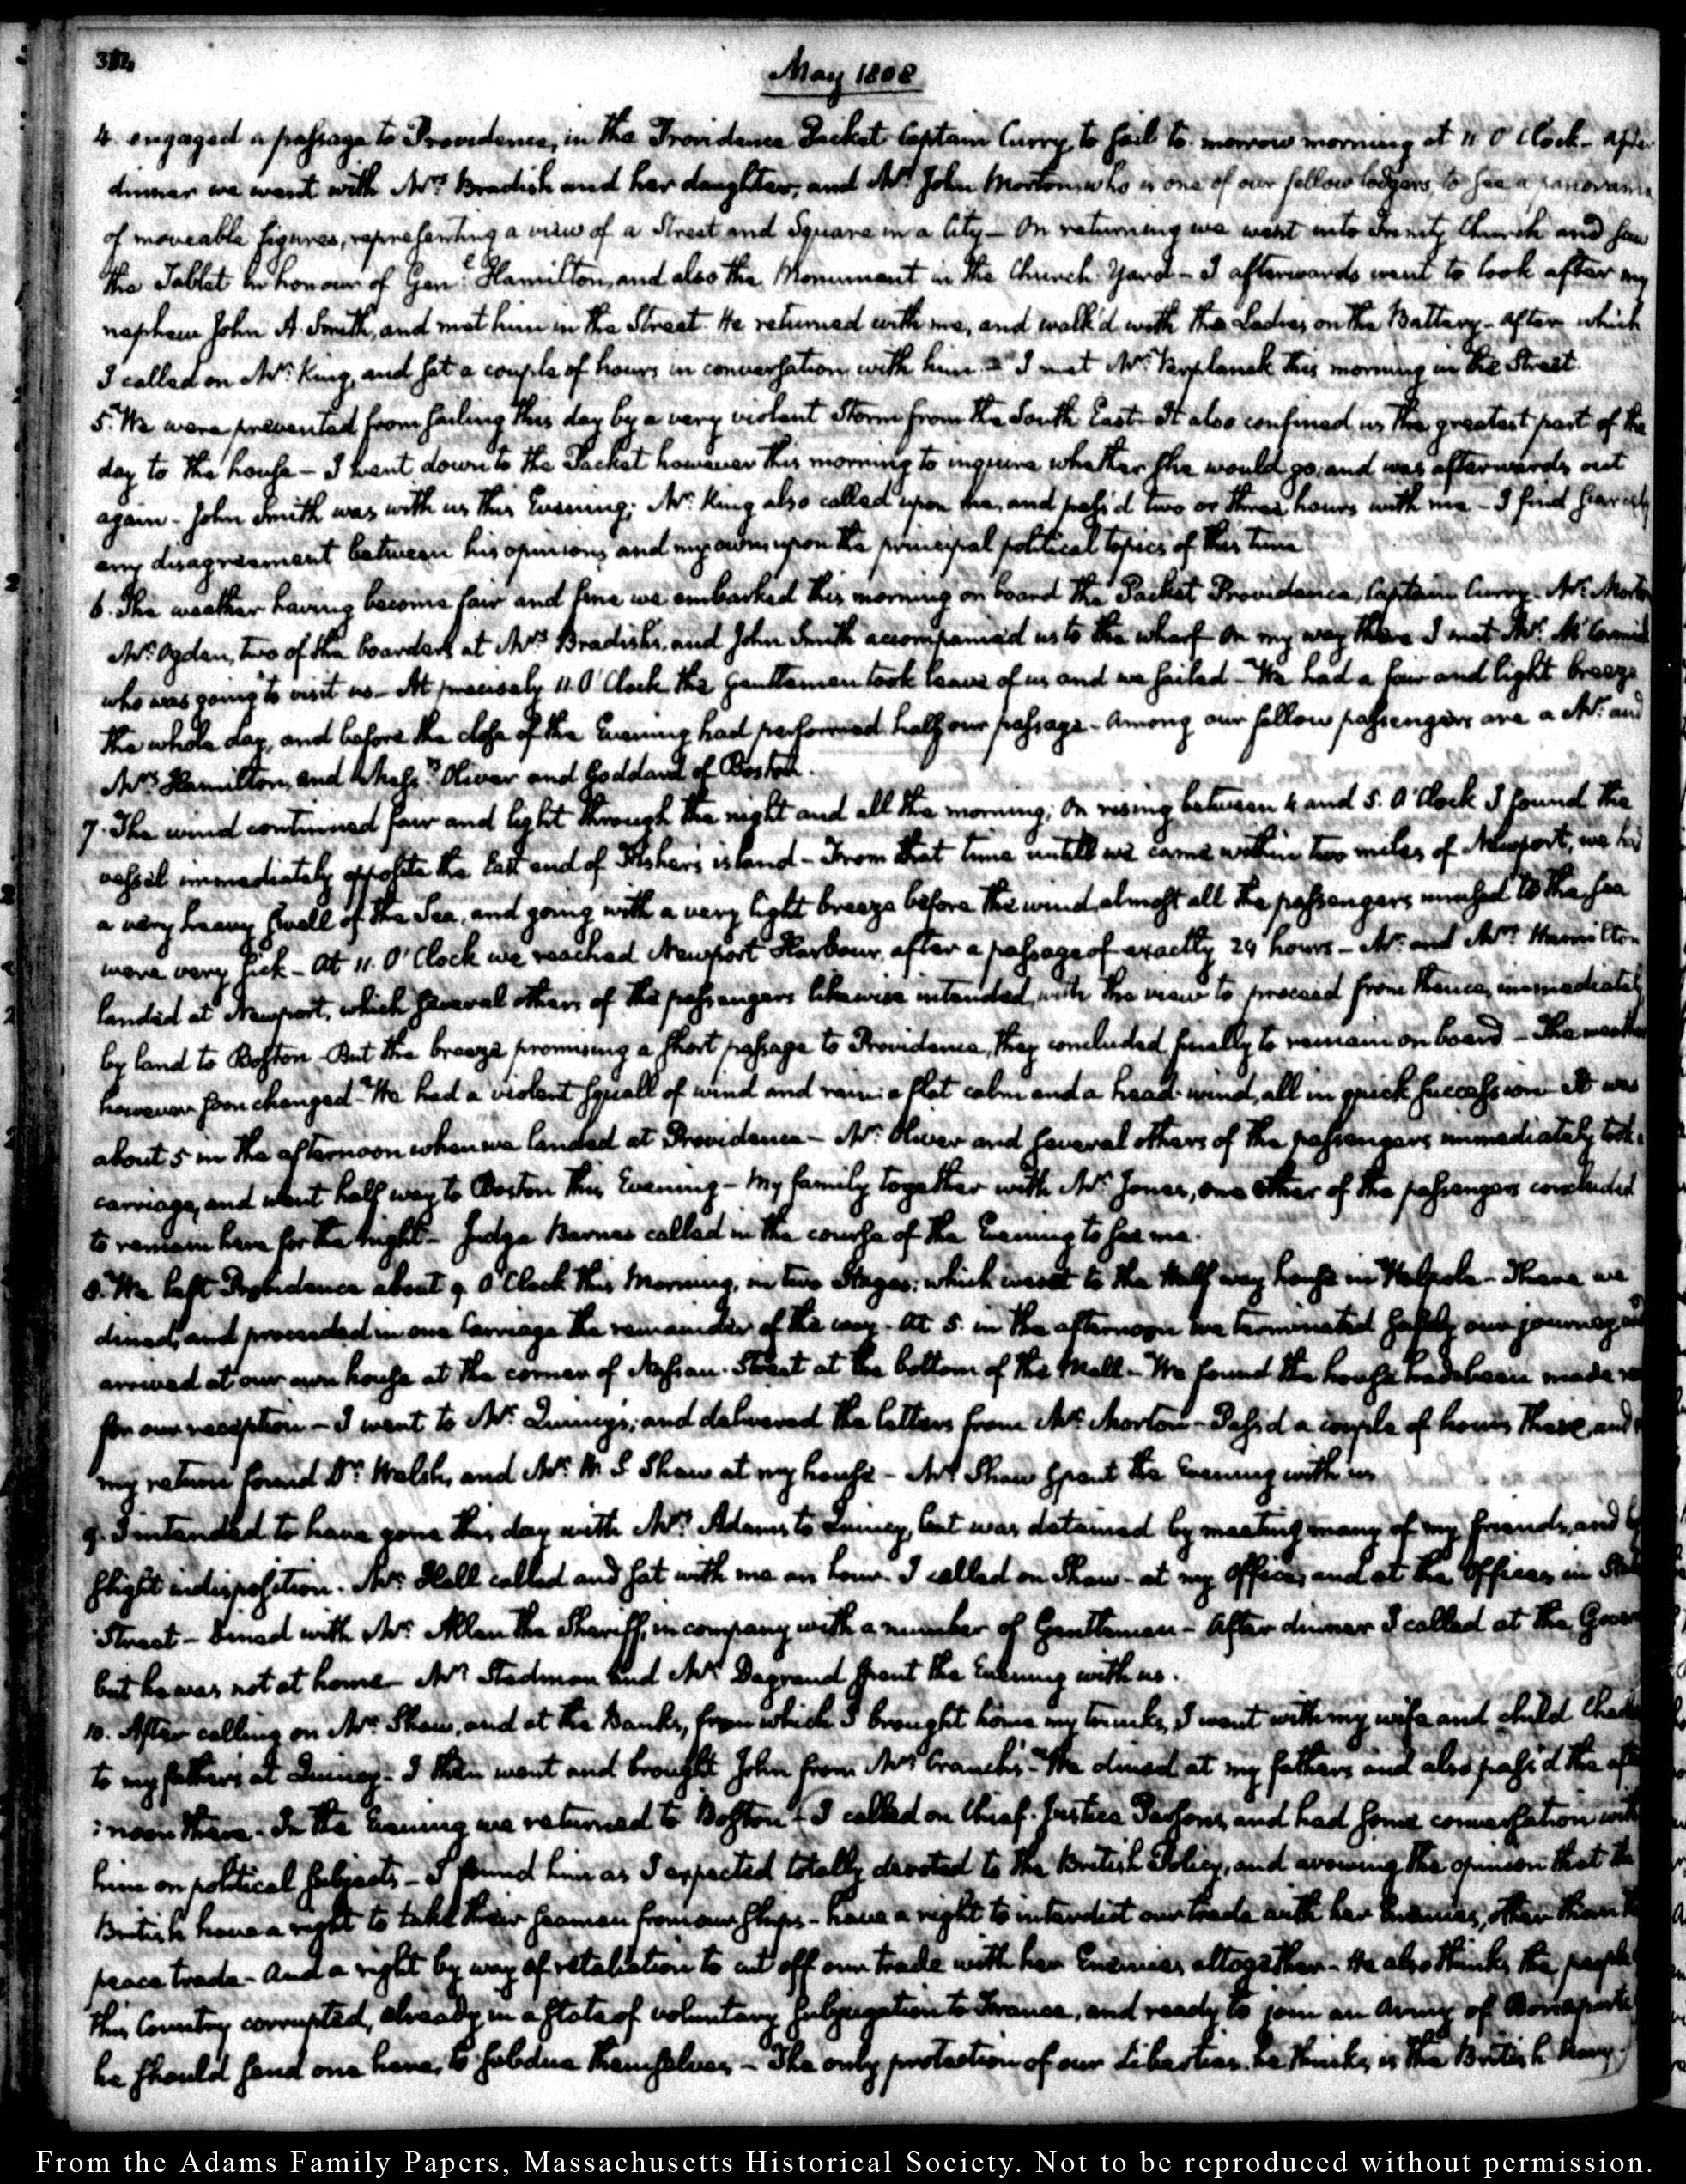 May 1808
4. engaged a passage to Providence, in the Providence Packet Captain Curry, to sail to-morrow morning at 11 O'Clock- After
dinner we went with Mrs Bradish and her daughter, and Mr John Morton who is one of our fellow lodgers, to see a panorama
of moveable figures, representing a view of a Street and Square in a City- On returning we went into Trinity Church and saw
the Tablet in honour of Genl Hamilton, and also the Monument in the Church-Yard- I afterwards went to look after my
nephew John A. Smith, and met him in the Street. He returned with me, and walk'd with the Ladies on the Battery- after which
I called on Mr King, and sat a couple of hours in conversation with him- I met Mr Verplanck this morning in the Street.
5. We were prevented from sailing this day by a very violent Storm from the South East- It also confined us the greatest part of the
day to the house- I went down to the Packet however this morning to inquire whether she would go, and was afterwards out
again- John Smith was with us this Evening; Mr King also called upon me, and pass'd two or three hours with me- I find scarcely
any disagreement between his opinions and my own upon the principal political topics of this time.
6. The weather having become fair and fine we embarked this morning on board the Packet Providence, Captain Curry. Mr Morton
Mr Ogden, two of the boarders at Mrs Bradish's, and John Smith accompanied us to the wharf- On my way there I met Mr McCormick
who was going to visit us- At precisely 11 O'Clock the gentlemen took leave of us and we sailed- We had a fair and light breeze
the whole day, and before the close of the Evening had performed half our passage- Among our fellow passengers are a Mr and
Mrs Hamilton, and Messrs Oliver and Goddard of Boston.
7. The wind continued fair and light through the night and all the morning; On rising between 4 and 5. O'Clock I found the
vessel immediately opposite the East end of Fisher's island- From that time untill we came within two miles of Newport, we had
a very heavy swell of the Sea, and going with a very light breeze before the wind, almost all the passengers unused to the sea
were very sick- At 11. O'Clock we reached Newport Harbour, after a passage of exactly 24 hours- Mr and Mrs Hamilton
landed at Newport, which several others of the passengers likewise intended, with the view to proceed from thence, immediately
by land to Boston- But the breeze promising a short passage to Providence, they concluded finally to remain on board- The weather
however soon changed- We had a violent squall of wind and rain: a flat calm and a head-wind, all in quick succession- It was
about 5 in the afternoon when we landed at Providence- Mr Oliver and several others of the passengers immediately took
carriage, and went half way to Boston this Evening- My family together with Mr Jones, one other of the passengers concluded
to remain here for the night- Judge Barnes called in the course of the Evening to see me.
8. We left Providence about 9 O'Clock this Morning, in two Stages; which went to the Half way house in Walpole- There we
dined, and proceeded in one Carriage the remainder of the way. At 5. in the afternoon we terminated safely our journey and
arrived at our own house at the corner of Nassau-Street at the bottom of the Mall- We found the house had been made
for our reception- I went to Mr Quincy's; and delivered the letters from Mr Morton- Pass'd a couple of hours there and
my return found Dr Welsh, and Mr W. S. Shaw at my house- Mr Shaw spent the Evening with us
9. I intended to have gone this day with Mrs Adams to Quincy, but was detained by meeting many of my friends, and
slight indisposition. Mr Hall called and sat with me an hour- I called on Shaw- at my Office, and at the Offices in State
Street- Dined with Mr Allen the Sheriff, in company with a number of Gentlemen- After dinner I called at the
but he was not at home- Mr Stedman and Mr Degrand spent the Evening with us.
10. After calling on Mr Shaw, and at the Banks, from which I brought home my trunks, I went with my wife and child
to my father's at Quincy- I then went and brought John from Mrs Cranch's- We dined at my father's and also pass'd the after
:noon there- In the Evening we returned to Boston- I called on Chief-Justice Parsons, and had some conversation with
him on political subjects- I found him as I expected totally devoted to the British Policy, and avowing the opinion that the
British have a right to take their seamen from our ships- have a right to interdict our trade with her Enemies, other than
peace trade- And a right by way of retaliation to cut off our trade with her Enemies altogether- He also thinks the people
this Country corrupted, already in a state of voluntary subjugation to France, and ready to join an Army of Bonaparte
he should send one here, to subdue themselves- The only protection of our Liberties he thinks, is the British Navy.
From the Adams Family Papers, Massachusetts Historical Society. Not to be reproduced without permission.